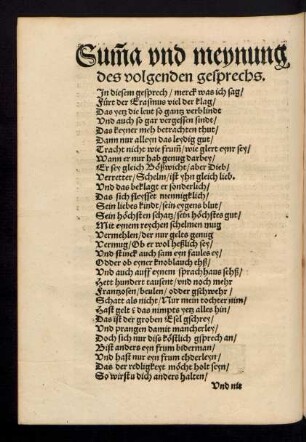 Sum̃a vnd meynung
des volgenden gesprechs.
In diesem gesprech / merck was ich sag /
Fürt der Erasmus viel der klag /
Das yetz die leut so gantz verblindt
Vnd auch so gar vergessen sindt /
Das keyner meh betrachten thut /
Dann nur alleyn das leydig gut /
Eracht nicht wie frum̃ / wie giert eynr sey /
Wann er nur hab genug darbey /
Er sey gleich Bößwicht / aber Dieb /
Verretter / Schelm / ist yhn gleich lieb.
Vnd das beklagt er sonderlich /
Das sich fleysset mennigklich /
Sein liebes kindt / sein eygens blut /
Sein höchsten schatz / sein höchstes gut /
Mit eynem reychen schelmen mug
Vermehlen / der nur geltes genug
Vermug / Ob er wol heßlich sey /
Vnd stinck auch sam eyn faules ey /
Odder ob eyner knoblauch eßß /
Vnd auch auff eynem sprachhaus seßß /
Hett hundert tausent / vnd noch mehr
Frantzosen / beulen / odder gschwehr /
Schatt als nicht / Nur mein tochter nim /
Hast gelt: das nimpts yetz alles hin /
Das ist der groben Esel gschrey /
Vnd prangen damit mancherley /
Doch sich nur diß köstlich gsprech an /
Bist anders eyn frum biderman /
Vnd hast nur eyn frum ehderleyn /
Das der redligkeyt möcht holt seyn /
So wirstu dich anders halten /
Vnd nit